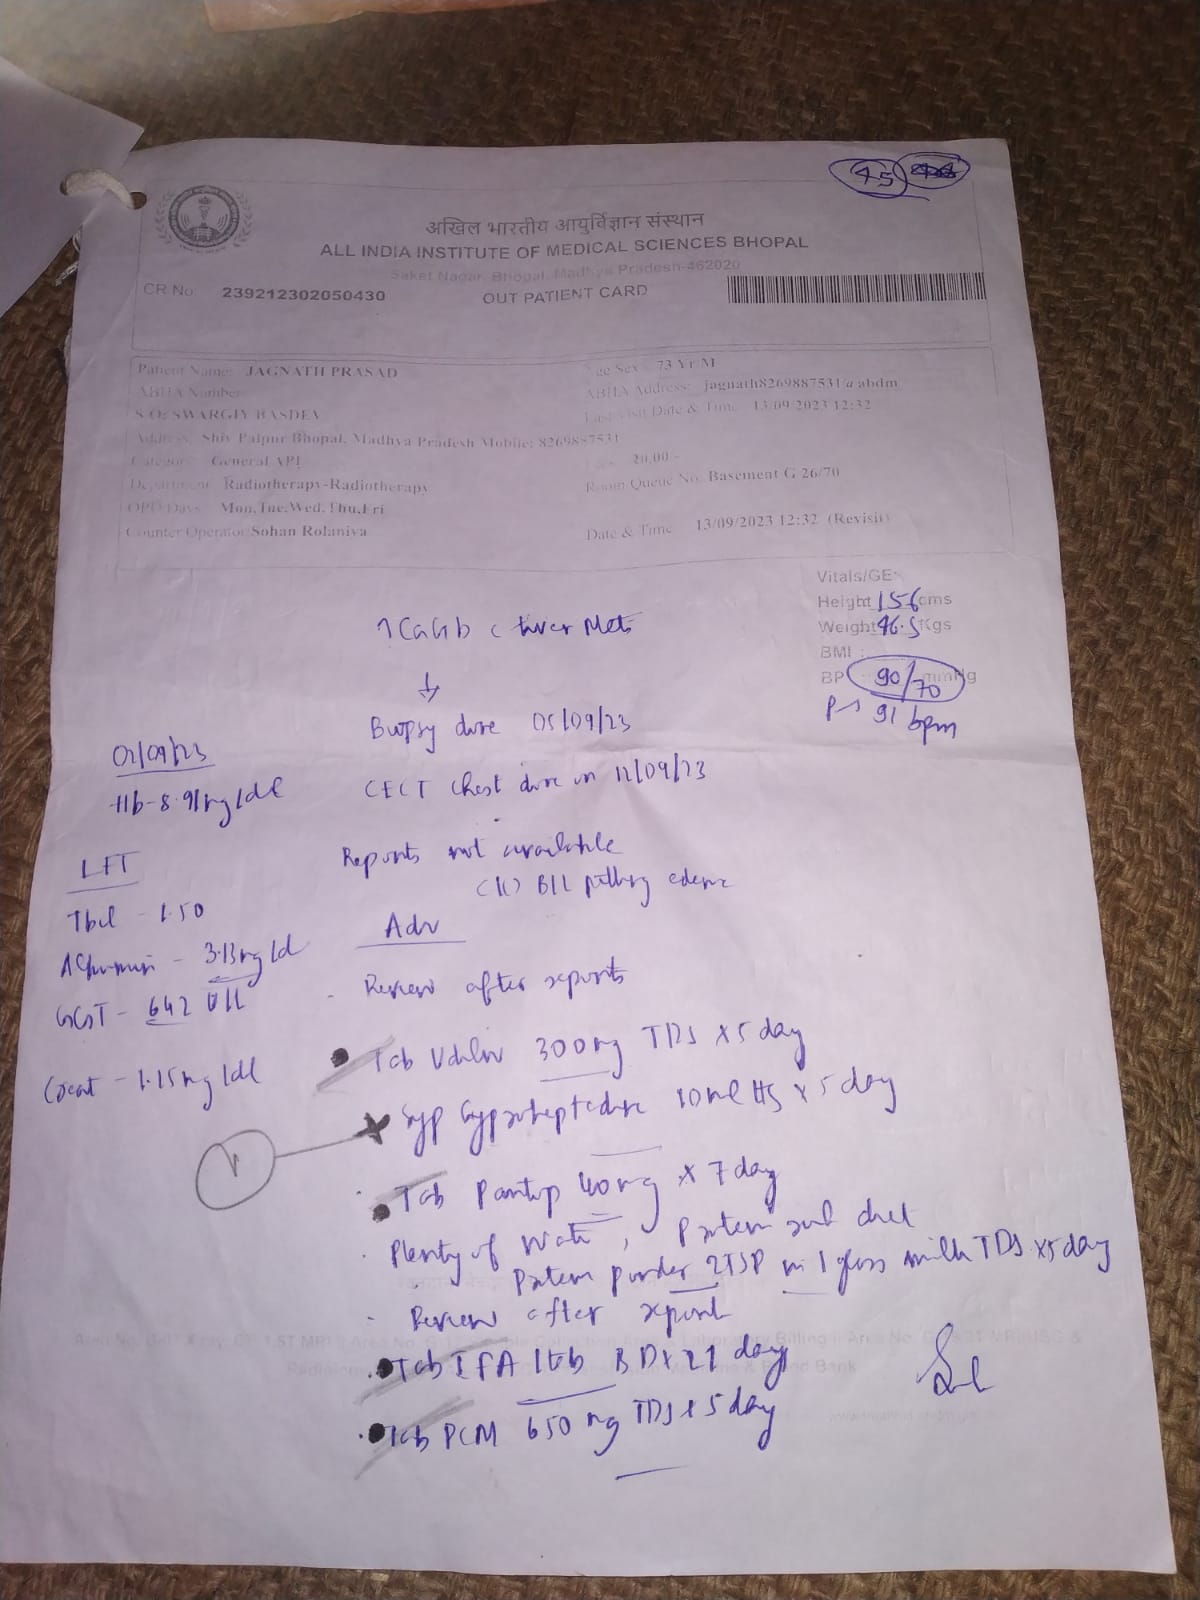 45
अखिल भारतीय आयुर्विज्ञान संस्थान
ALL INDIA INSTITUTE OF MEDICAL SCIENCES BHOPAL
Saket Nagar, Bhopal, Madhya Pradesh-462020
CR No: 239212302050430
OUT PATIENT CARD
Patient Name: JAGNATH PRASAD
ge Sex: 73 Yr M
ABHA Number:
ABHA Address: jagnath8269887531@abdm
S O: SWARGIY BASDEV
Last Visit Date & Time 13/09/2023 12:32
Address: Shiv Palpur Bhopal, Madhya Pradesh Mobile: 8269887531
Category: General APL
20.00
Department: Radiotherapy-Radiotherapy
Room Queue No: Basement G 26/70
OPD Days: Mon,Tue,Wed,Thu,Fri
Counter Operator Sohan Rolaniya
Date & Time 13/09/2023 12:32 (Revisit)
Vitals/GE:
Height 156 cms
Weight 46.5 Kgs
BMI :
BP 90/70 mmHg
91 bpm
CaGb c Liver Mets
↓
Biopsy done 05/09/23
CECT Chest done on 12/09/23
02/09/23
Hb-8.91mg/dl
Reports not available
B/L pitting edema
LFT
Tbil - 1.50
Albumin - 3.13mg/d
GGT - 642 U/L
Creat - 1.15mg/dl
Adv
Review after reports
Tab Udiliv 300mg TDS x 5 day
Syp 10ml HS x 5 day
Tab Pantop 40mg x 7 day
Plenty of Water, Protein diet
Protein powder 2TSP in 1 glass milk TDS x5day
Review after report
Tab IFA 1tab BD x 21 day
Tab PCM 650 mg TDS x 5 day